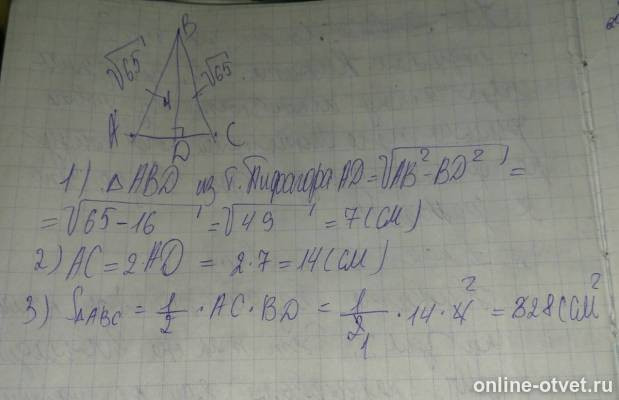 B
√65 √65
4
A D C
1) △ABD из т. Пифагора AD = √AB² - BD² =
= √65 - 16 = √49 = 7 (см)
2) AC = 2AD = 2·7 = 14 (см)
3) S△ABC = 1/2 · AC · BD = 1/2 1 · 14 · 4 2 = 28 (см²
online-otvet.ru